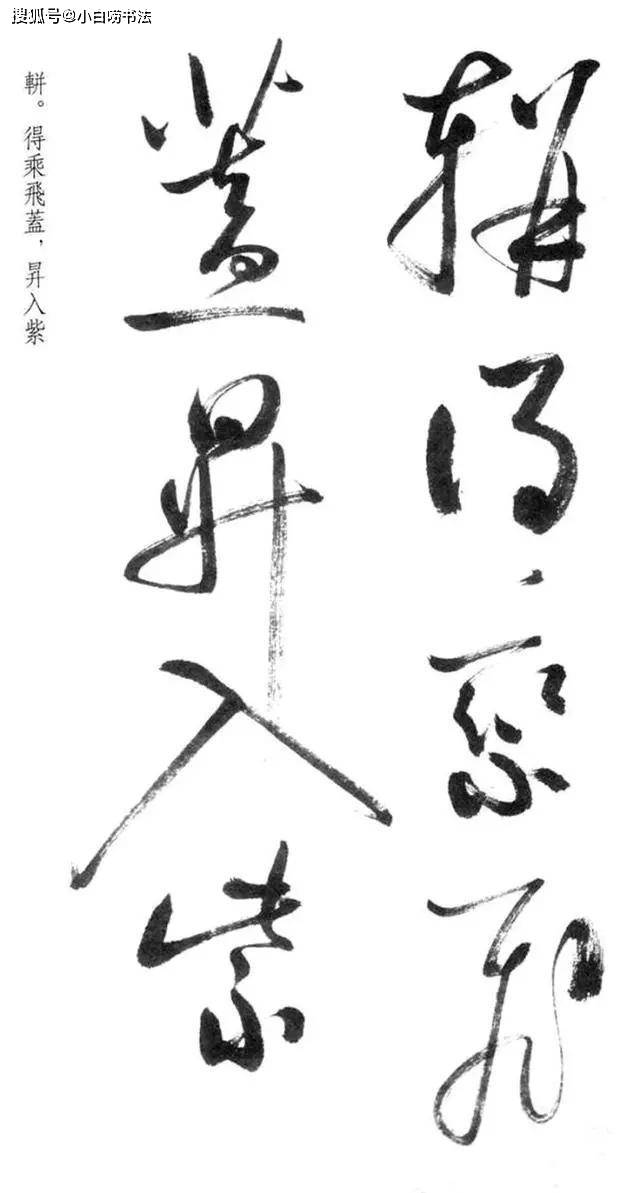 搜狐号@小白唠书法
軿得乘飛
蓋昇入紫
軿。得乘飛蓋，昇入紫